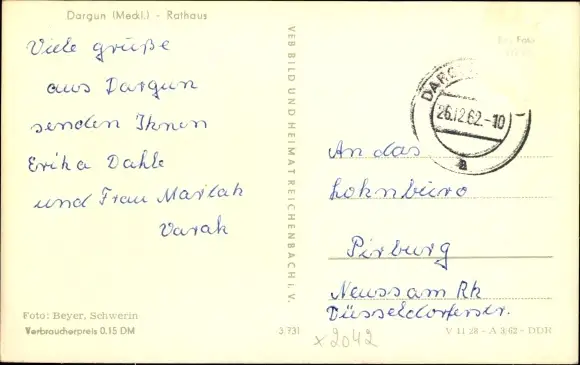 Dargun (Meckl.) - Rathaus
Viele grüße
aus Dargun
senden Ihnen
Erika Dahle
und Frau Marlak
Varak
Foto: Beyer, Schwerin
Verbraucherpreis 0.15 DM
VEB BILD UND HEIMAT REICHENBACH i. V.
3 731
26.12.62.-10
a
An das
Lohnbüro
Pirburg
Neuss am Rh
Düsseldorferstr.
x 2042
V 11 28 - A 3/62 - DDR